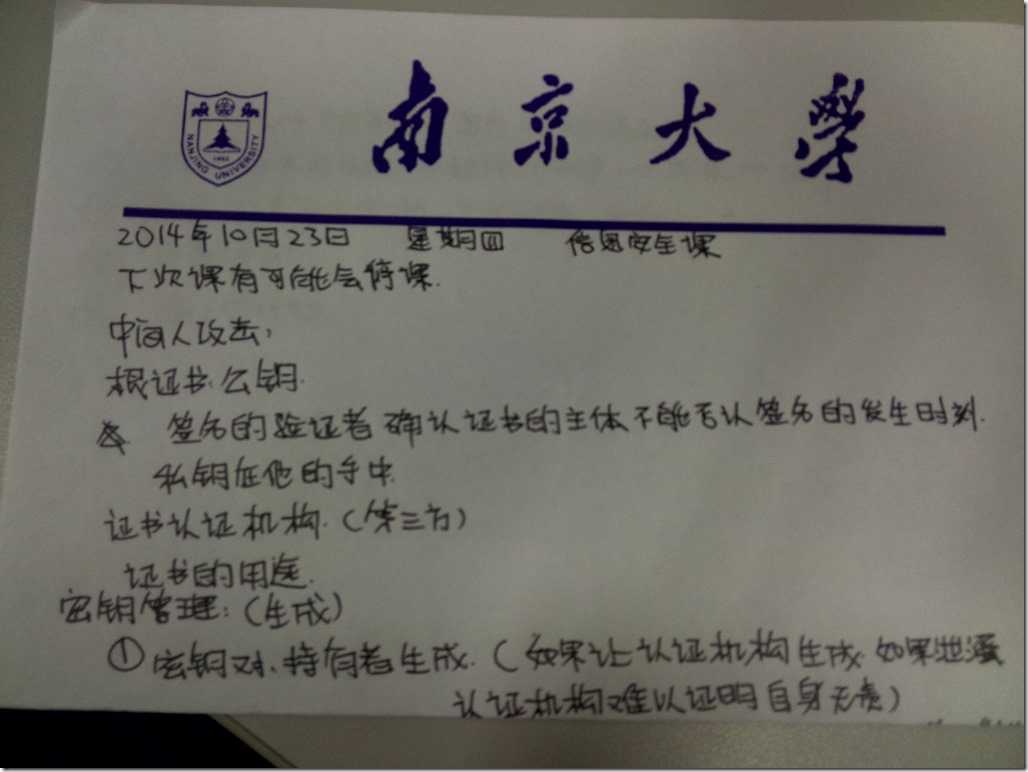 南京大学
NANJING UNIVERSITY
1902
2014年10月23日 星期四 信息安全课
下次课有可能会停课.
中间人攻击;
根证书公钥.
签名的验证者确认证书的主体不能否认签名的发生时刻.
私钥在他的手中.
证书认证机构.(第三方)
证书的用途.
密钥管理:(生成)
① 密钥对、持有者生成.(如果让认证机构生成.如果泄漏
认证机构难以证明自身无责)